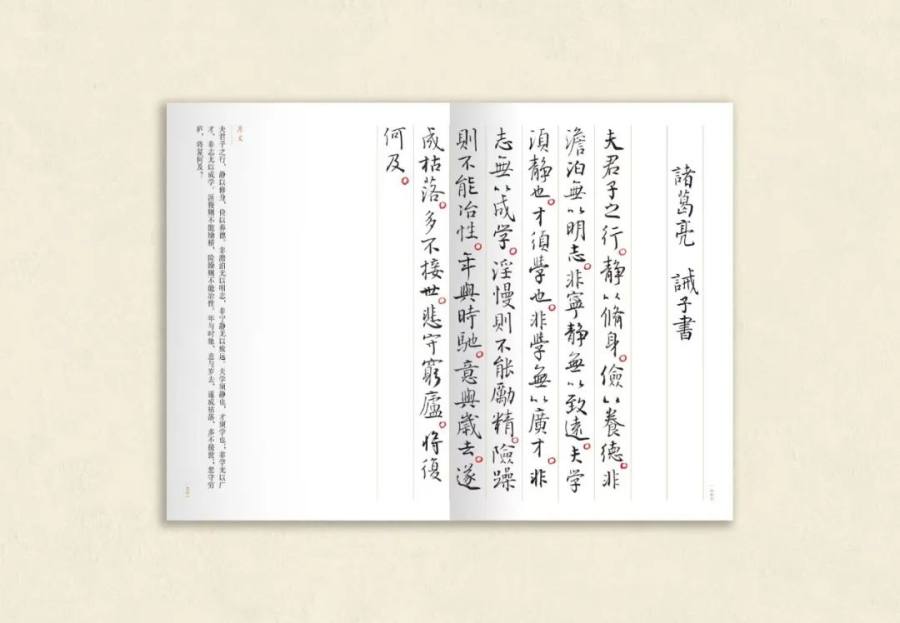 諸葛亮 誡子書
夫君子之行。静以脩身。儉以養德。非
澹泊無以明志。非寧静無以致遠。夫学
須静也。才須學也。非學無以廣才。非
志無以成学。淫慢則不能勵精。險躁
則不能冶性。年與時馳。意與歲去。遂
成枯落。多不接世。悲守窮廬。將復
何及。
释文
夫君子之行，静以修身，俭以养德。非澹泊无以明志，非宁静无以致远。夫学须静也，才须学也；非学无以广
才，非志无以成学。淫慢则不能励精，险躁则不能治性。年与时驰，意与岁去，遂成枯落，多不接世；悲守穷
庐，将复何及？